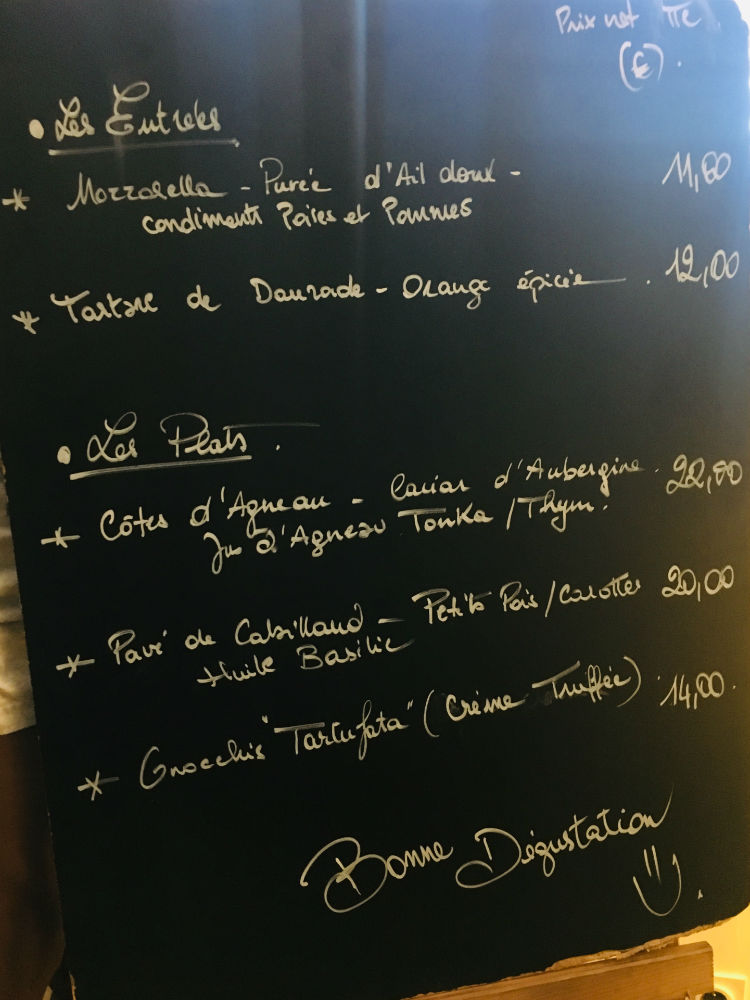 Prix net TTC
(€).
• Les Entrées
* Mozzarella - Purée d'Ail doux - 11,00
condiments Poires et Pommes
* Tartare de Daurade - Orange épicée . 12,00
• Les Plats .
* Côtes d'Agneau - Caviar d'Aubergine . 22,00
Jus d'Agneau Tonka / Thym.
* Pavé de Cabillaud - Petits Pois / Carottes 20,00
Huile Basilic
* Gnocchis "Tartufata" (Crème Truffée) . 14,00.
Bonne Dégustation